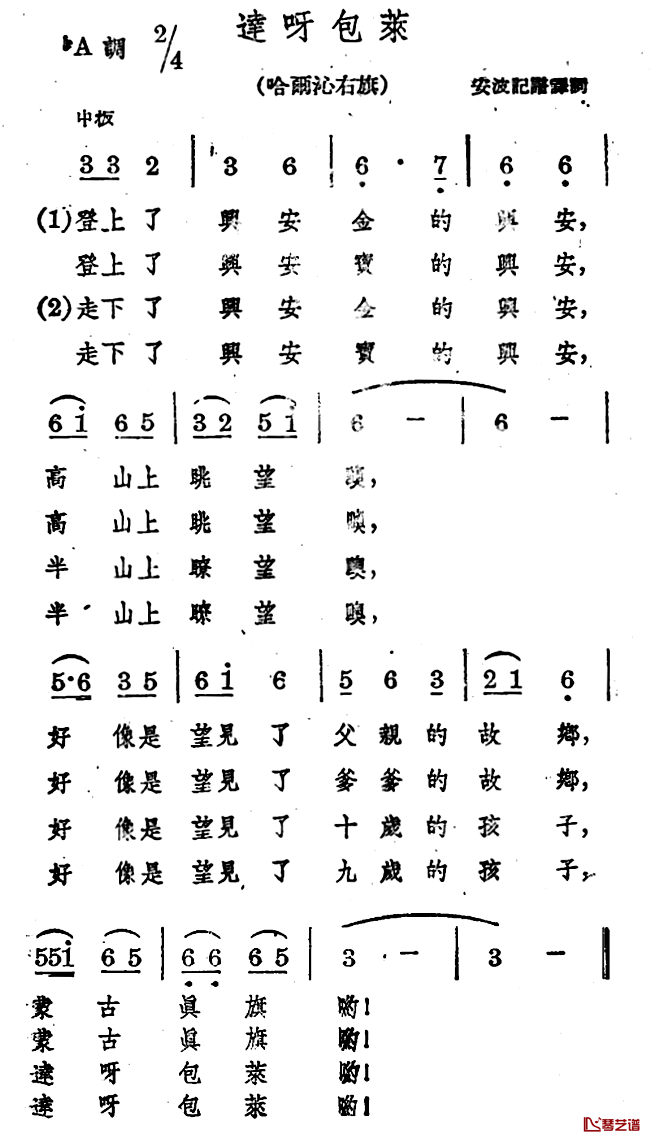 達呀包萊
♭A 調 2/4
(哈爾沁右旗)
安波記譜譯詞
中板
3 3 2 | 3 6 | 6 · 7 | 6 6 |
(1)登上了 興安金的興安,
登上了 興安寶的興安,
(2)走下了 興安金的興安,
走下了 興安寶的興安,
6 i 6 5 | 3 2 5 i | 6 — | 6 — |
高山上眺望噢,
高山上眺望噢,
半山上瞭望噢,
半山上瞭望噢,
5·6 3 5 | 6 i 6 | 5 6 3 | 2 1 6 |
好像是望見了父親的故鄉,
好像是望見了爹爹的故鄉,
好像是望見了十歲的孩子,
好像是望見了九歲的孩子,
5 5 i 6 5 | 6 6 6 5 | 3 — | 3 — ‖
蒙古眞旗喲!
蒙古眞旗喲!
達呀包萊喲!
達呀包萊喲!
琴艺谱